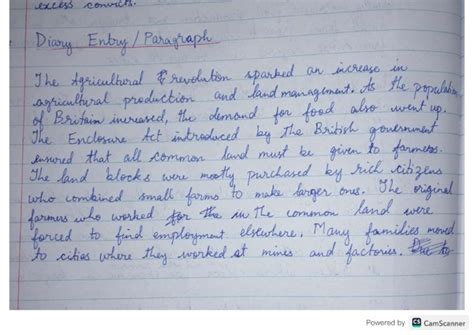 excess convicts.
Diary Entry / Paragraph
The Agricultural revolution sparked an increase in
agricultural production and land management. As the population
of Britain increased, the demand for food also went up.
The Enclosure Act introduced by the British government
ensured that all common land must be given to farmers.
The land blocks were mostly purchased by rich citizens
who combined small farms to make larger ones. The original
farmers who worked for the in the common land were
forced to find employment elsewhere. Many families moved
to cities where they worked at mines and factories.
Powered by CS CamScanner